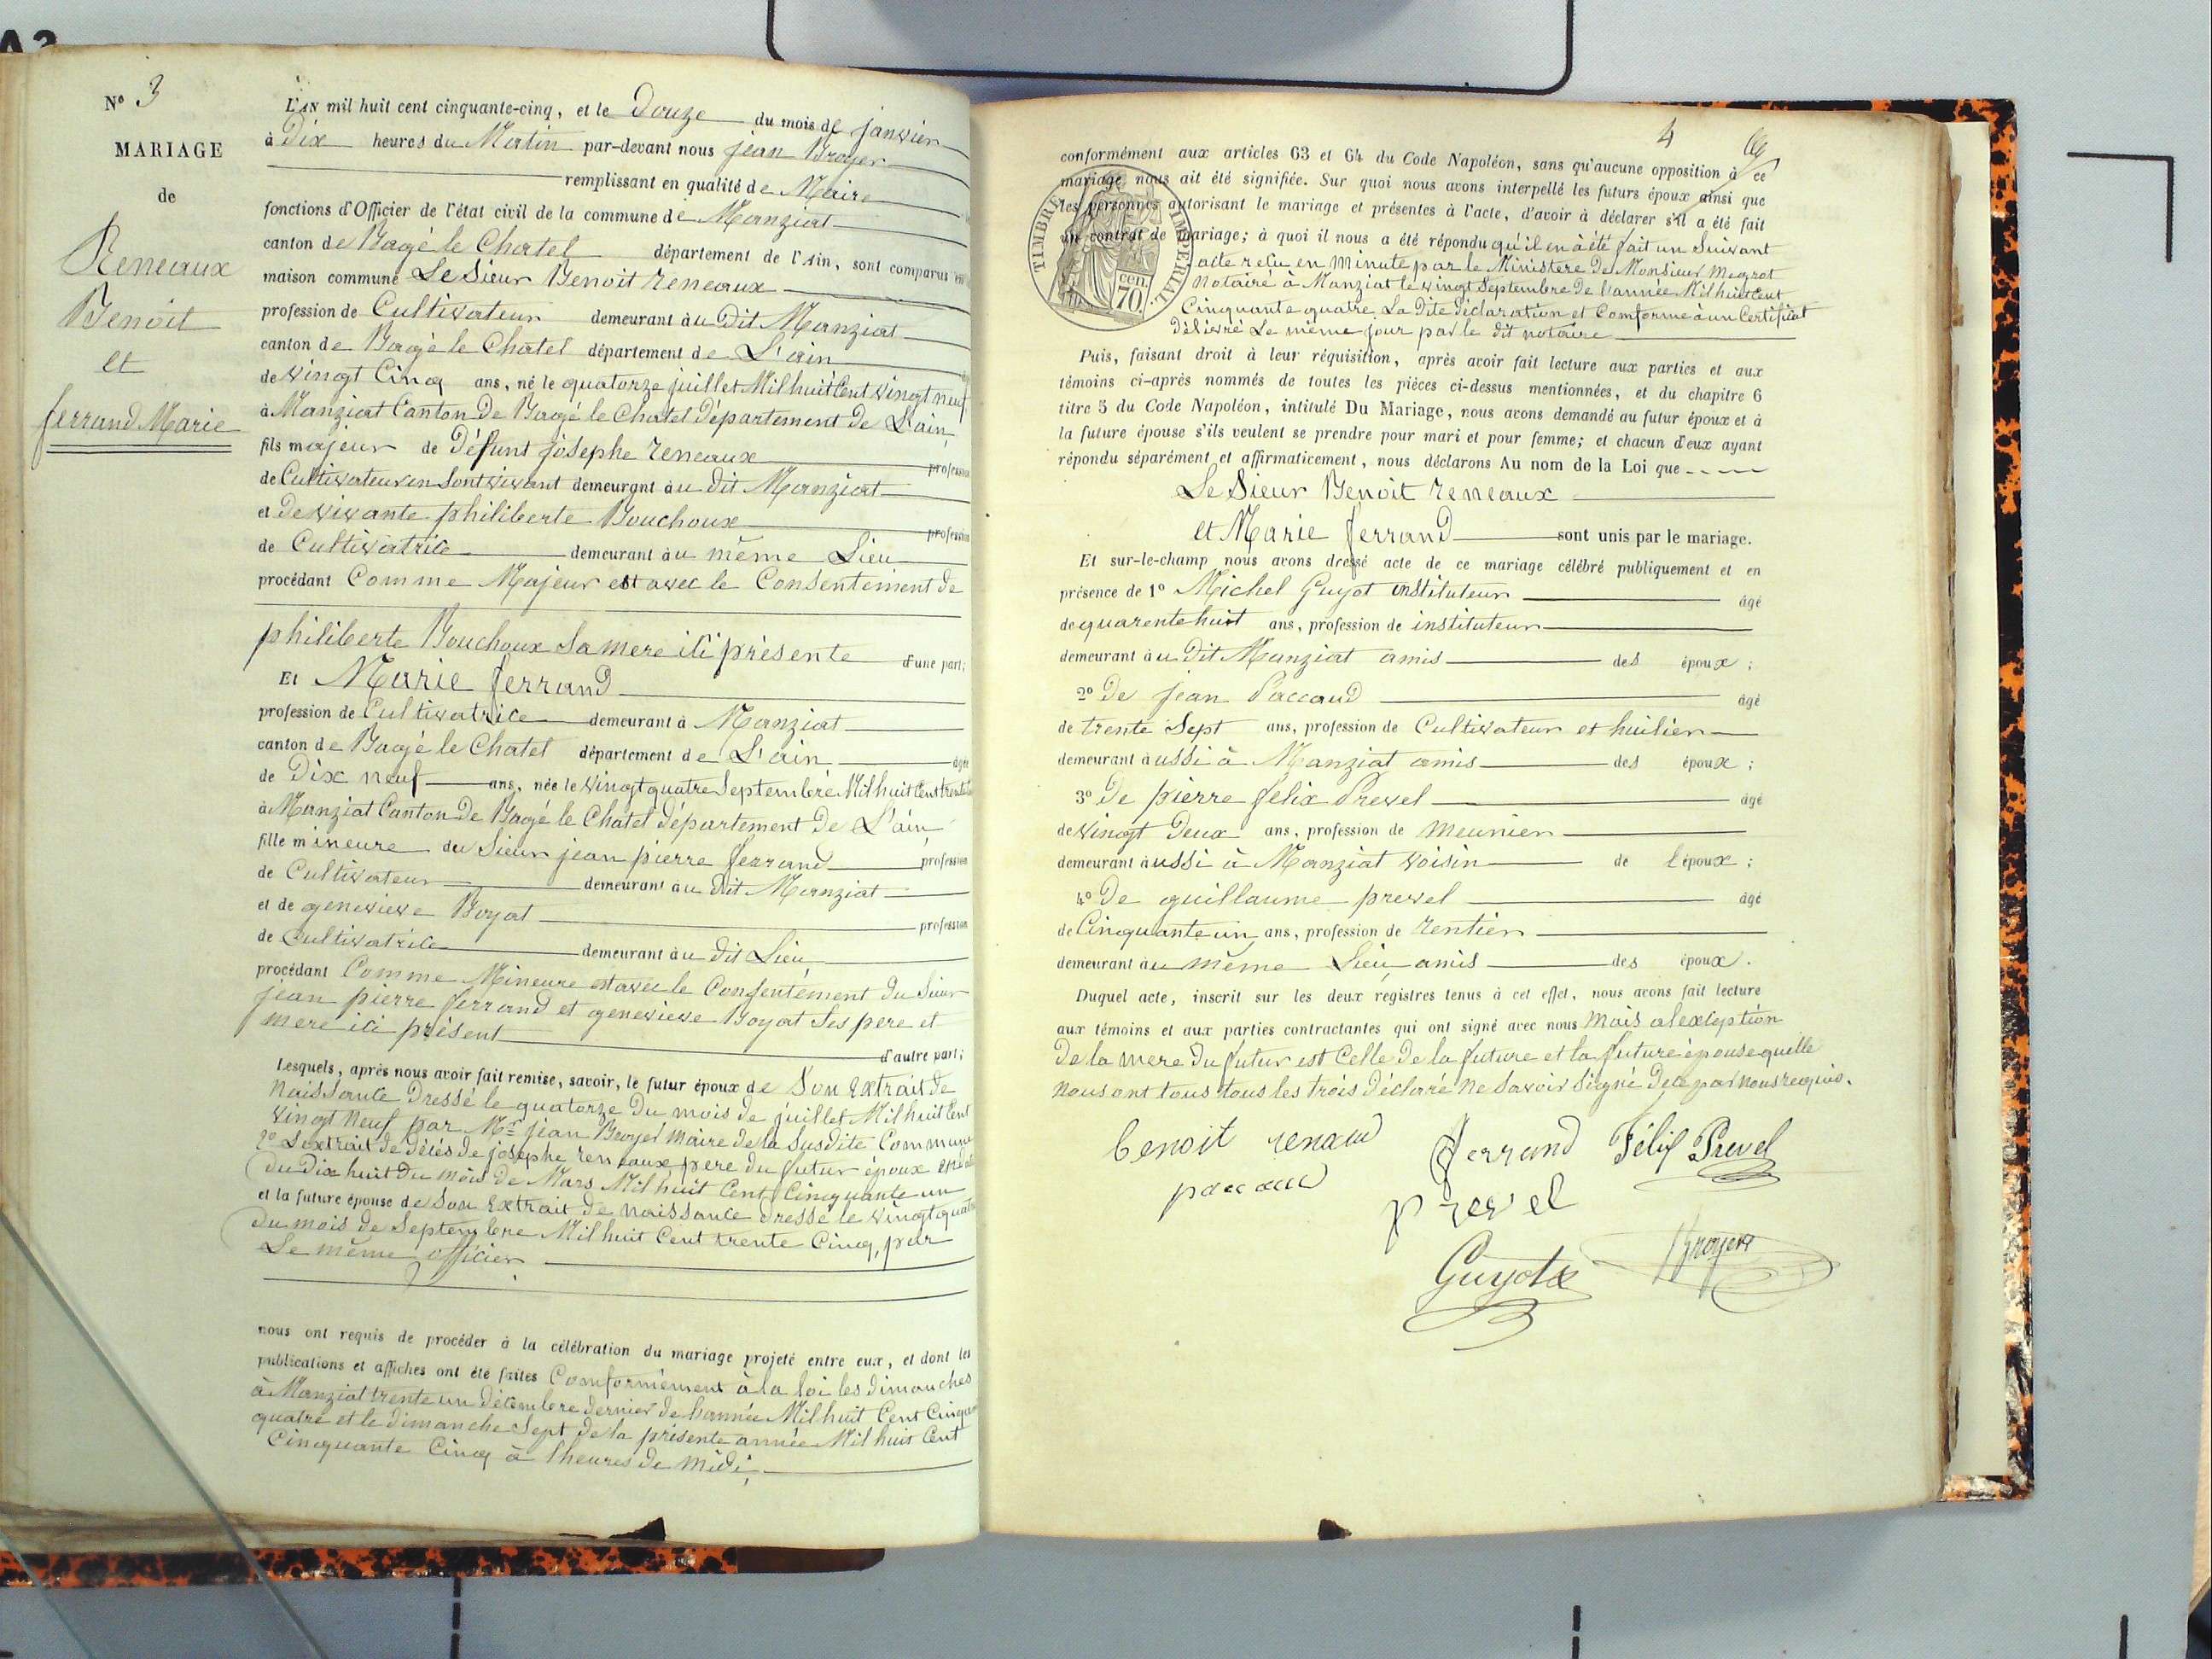 A3
N° 3
MARIAGE
de
Reneaux
Benoit
et
ferrand Marie
L'AN mil huit cent cinquante-cinq, et le Douze du mois de janvier
à Dix heures du Matin par-devant nous jean Broyer
remplissant en qualité de Maire
fonctions d'Officier de l'état civil de la commune de Manziat
canton de Bagé le Chatel département de l'Ain, sont comparus en
maison commune Le Sieur Benoit reneaux
profession de Cultivateur demeurant au Dit Manziat
canton de Bagé le Chatel département de L'ain
de vingt Cinq ans, né le quatorze juillet Mil huit Cent vingt neuf
à Manziat Canton De Bagé le Chatel Département De L'ain
fils majeur de Défunt josephe reneaux profession
de Cultivateur en Sont vivant demeurant au dit Manziat
et De vivante philiberte Bouchoux profession
de Cultivatrice demeurant au même Lieu
procédant Comme Majeur est avec le Consentement de
philiberte Bouchoux Sa mere ici présente d'une part;
Et Marie ferrand
profession de Cultivatrice demeurant à Manziat
canton de Bagé le Chatel département de L'ain âgée
de Dix neuf ans, née le vingt quatre Septembre Mil huit Cent trente
à Manziat Canton De Bagé le Chatel Département De L'ain
fille mineure du Sieur jean pierre ferrand profession
de Cultivateur demeurant au Dit Manziat
et de genevieve Boyat profession
de Cultivatrice demeurant au Dit Lieu
procédant Comme Mineure est avec le Consentement Du Sieur
jean pierre ferrand et genevieve Boyat Ses pere et
mere ici présent d'autre part;
Lesquels, après nous avoir fait remise, savoir, le futur époux de Son Extrait de
Naissance Dressé le quatorze Du mois de juillet Mil huit Cent
vingt Neuf par Mr jean Broyer Maire de la Susdite Commune
2° L'extrait de Décès de josephe reneaux pere du futur époux en date
du Dix huit Du mois De Mars Mil huit Cent Cinquante un
et la future épouse de Son Extrait De Naissance Dressé le vingt quatre
Du mois de Septembre Mil huit Cent trente Cinq, par
Le même officier
nous ont requis de procéder à la célébration du mariage projeté entre eux, et dont les
publications et affiches ont été faites Comformément à la loi les dimanches
à Manziat trente un Décembre Dernier de l'année Mil huit Cent Cinquante
quatre et le dimanche Sept de la présente année Mil huit Cent
Cinquante Cinq à l'heures de Midi,
4
conformément aux articles 63 et 64 du Code Napoléon, sans qu'aucune opposition à ce
mariage nous ait été signifiée. Sur quoi nous avons interpellé les futurs époux ainsi que
les personnes autorisant le mariage et présentes à l'acte, d'avoir à déclarer s'il a été fait
un contrat de mariage; à quoi il nous a été répondu qu'il en à été fait un Suivant
acte reçu en Minute par le Ministere De Monsieur
Notaire à Manziat le vingt Septembre De l'année Mil huit Cent
Cinquante quatre La Dite Déclaration et Comforme à un Certificat
Délivré Le même jour par le dit notaire
TIMBRE IMPERIAL
cen.
70.
Puis, faisant droit à leur réquisition, après avoir fait lecture aux parties et aux
témoins ci-après nommés de toutes les pièces ci-dessus mentionnées, et du chapitre 6
titre 5 du Code Napoléon, intitulé Du Mariage, nous avons demandé au futur époux et à
la future épouse s'ils veulent se prendre pour mari et pour femme; et chacun d'eux ayant
répondu séparément et affirmativement, nous déclarons Au nom de la Loi que
Le Sieur Benoit reneaux
et Marie ferrand sont unis par le mariage.
Et sur-le-champ nous avons dressé acte de ce mariage célébré publiquement et en
présence de 1° Michel Guyot instituteur âgé
de quarente huit ans, profession de instituteur
demeurant au Dit Manziat amis des époux;
2° De jean Paccaud âgé
de trente Sept ans, profession de Cultivateur et huilier
demeurant aussi à Manziat amis des époux;
3° De pierre felix Prevel âgé
de vingt Deux ans, profession de meunier
demeurant aussi à Manziat voisin de l'époux;
4° De guillaume prevel âgé
de Cinquante un ans, profession de rentier
demeurant au même Lieu amis des époux.
Duquel acte, inscrit sur les deux registres tenus à cet effet, nous avons fait lecture
aux témoins et aux parties contractantes qui ont signé avec nous Mais alexception
De la mere Du futur est Celle De la future et la future épouse quelle
nous ont tous tous les trois Déclaré ne Savoir Signé De ce par nous requis.
benoit renaud ferrand Félix Prevel
paccaud prevel
Guyot Broyer